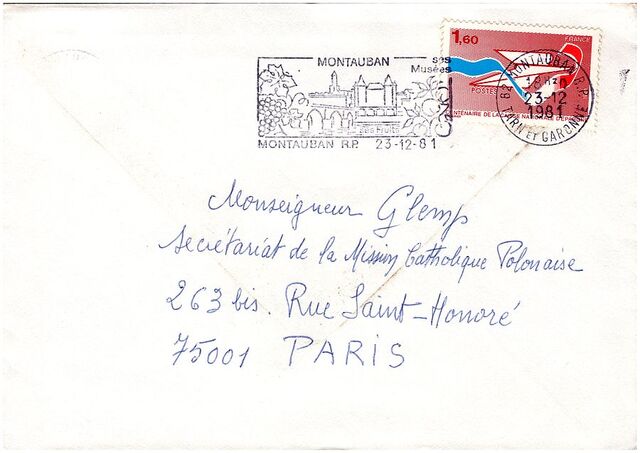 1,60
FRANCE
POSTES
MONTAUBAN
ses
Musées
ses Fruits
MONTAUBAN R.P. 23-12-81
82 MONTAUBAN R.P.
23-12
1981
TARN ET GARONNE
Monseigneur Glemp
Secrétariat de la Mission Catholique Polonaise
263 bis. Rue Saint-Honoré
75001 PARIS